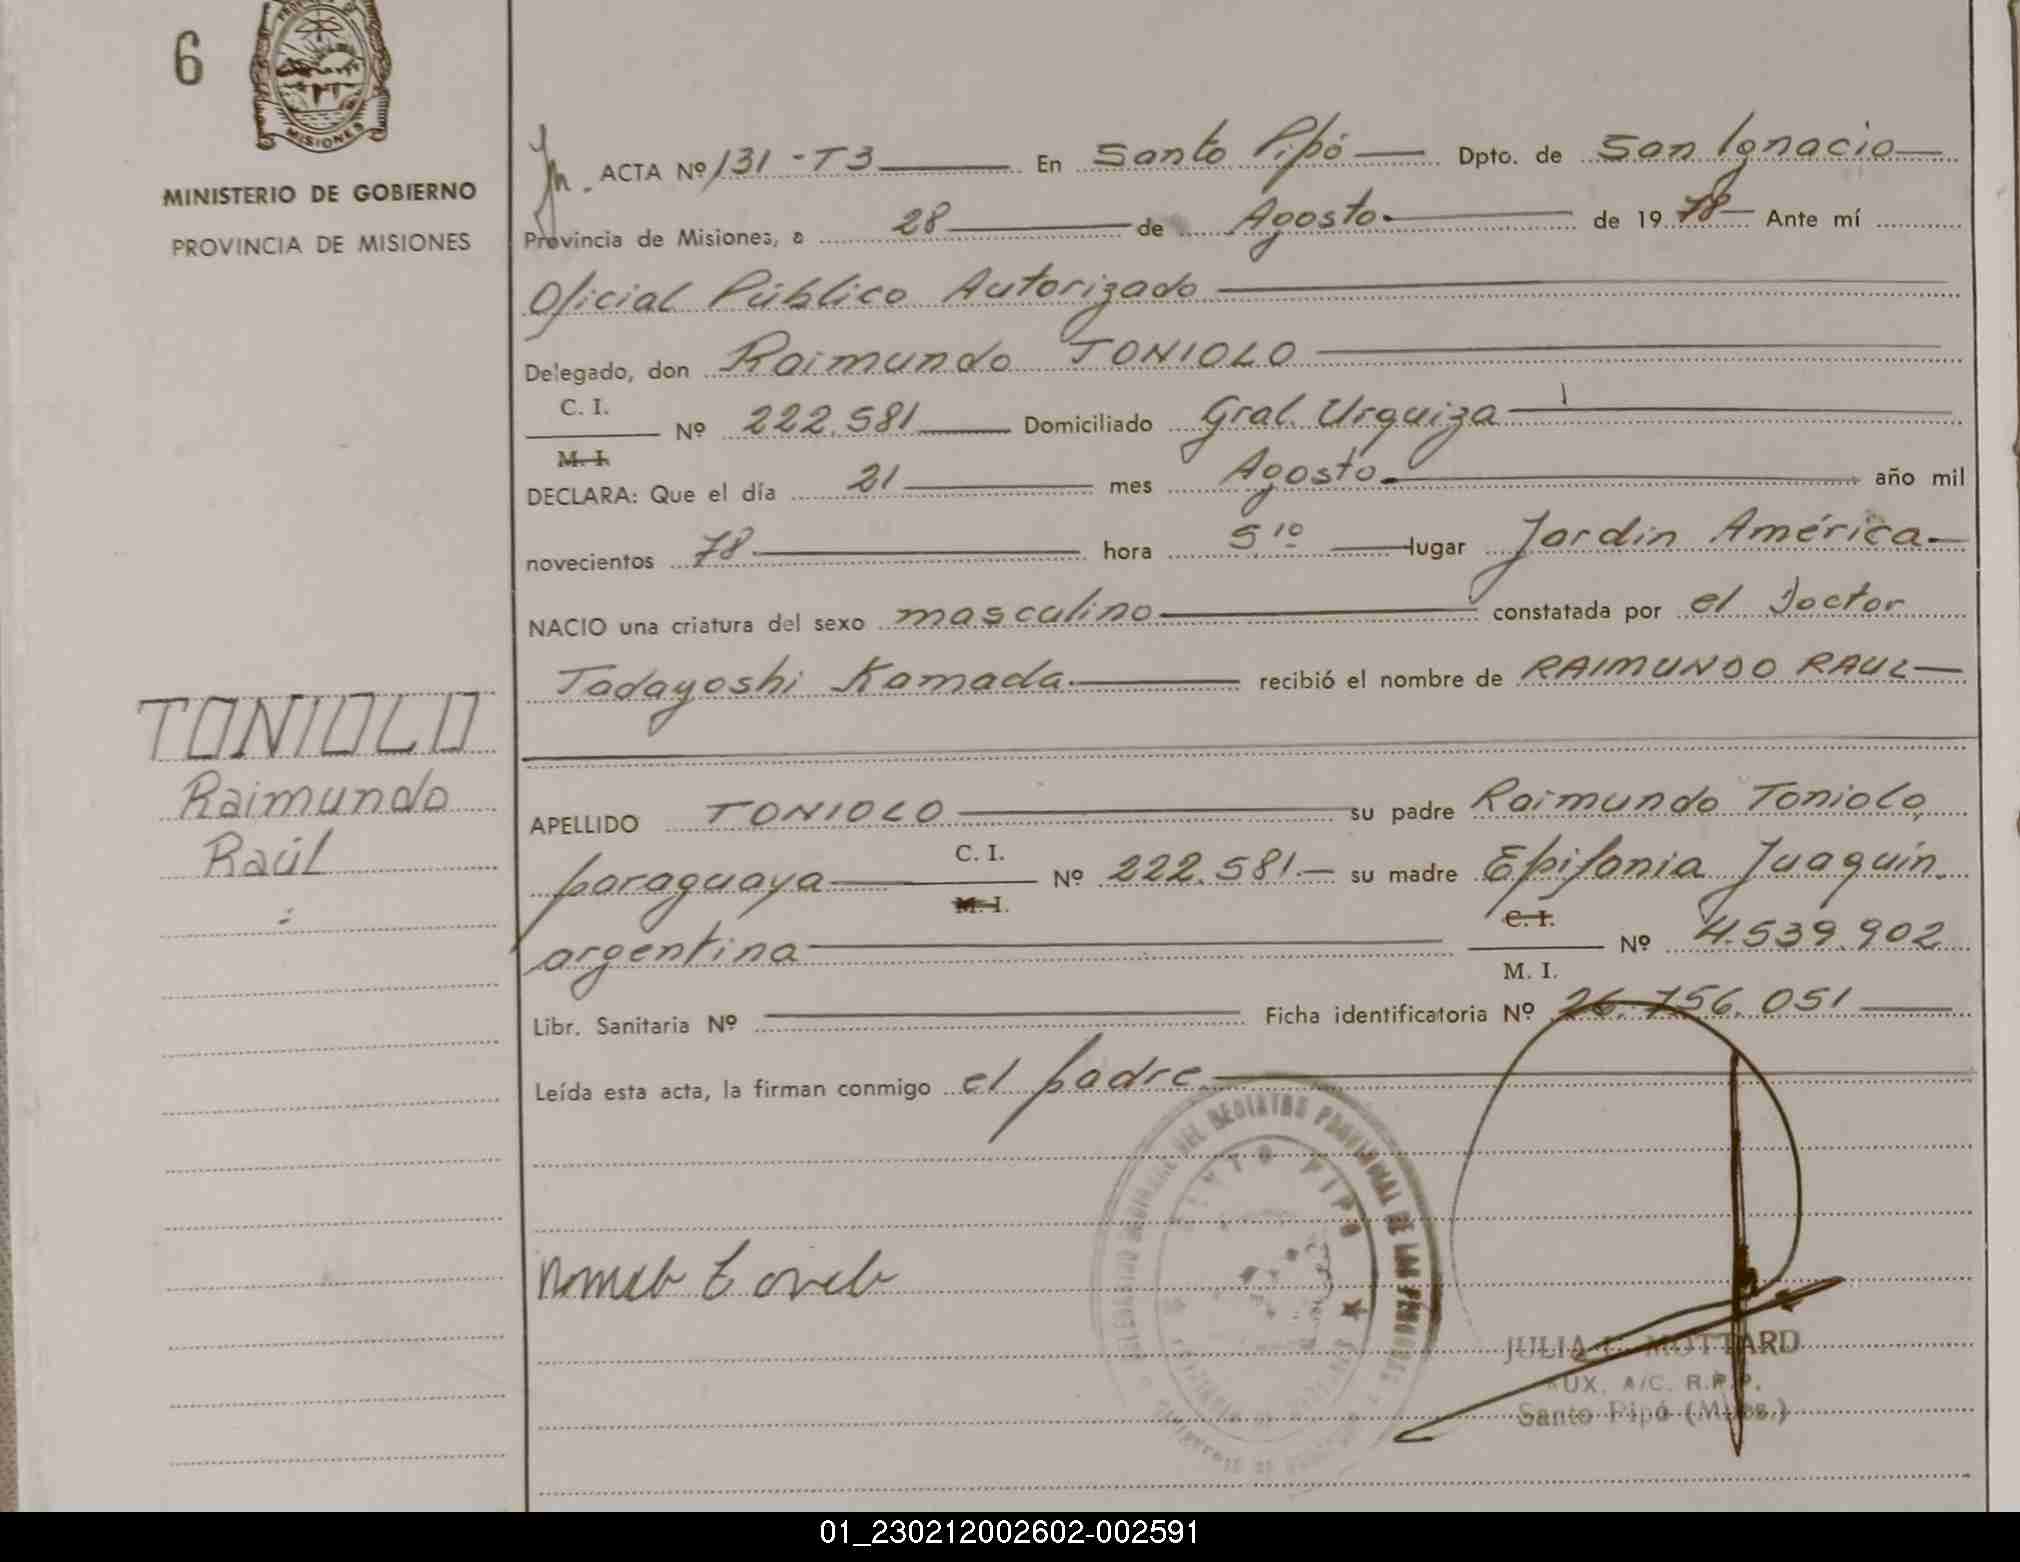 6
MISIONES
MINISTERIO DE GOBIERNO
PROVINCIA DE MISIONES
TONIOLO
Raimundo
Raúl
ACTA Nº 131 - T3 En Santo Pipó Dpto. de San Ignacio
Provincia de Misiones, a 28 de Agosto de 19 78 Ante mí
Oficial Público Autorizado
Delegado, don Raimundo TONIOLO
C. I.
Nº 222.581 Domiciliado Gral. Urquiza
M. I.
DECLARA: Que el día 21 mes Agosto año mil
novecientos 78 hora 5 10 lugar Jardin América
NACIO una criatura del sexo masculino constatada por el Doctor
Tadayoshi Kamada recibió el nombre de RAIMUNDO RAUL
APELLIDO TONIOLO su padre Raimundo Toniolo,
paraguaya C. I. Nº 222.581 su madre Epifania Juaquin.
M. I.
argentina C. I. Nº 4.539.902
M. I.
Libr. Sanitaria Nº Ficha identificatoria Nº 26.756.051
Leída esta acta, la firman conmigo el padre
DEL REGISTRO PROVINCIAL DE LAS PERSONAS
SANTO PIPO
JULIA MOTTARD
AUX. A/C. R.P.P.
Santo Pipó (Mnes.)
01_230212002602-002591